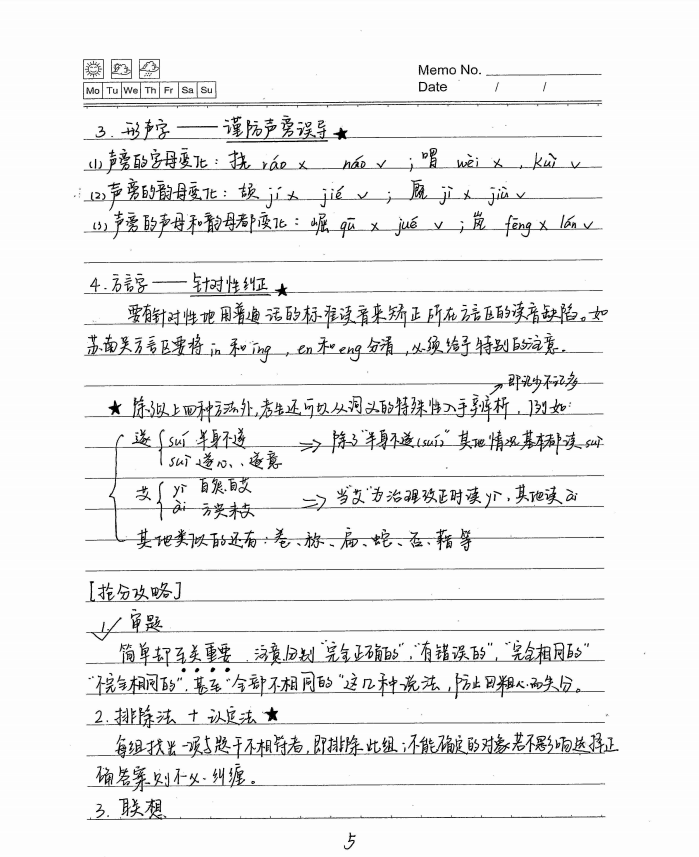 Memo No.
Mo Tu We Th Fr Sa Su
Date / /
3. 形声字 —— 谨防声旁误导 ★
(1) 声旁的字母变化: 挠 ráo × náo ∨ ; 喟 wèi ×, kuì ∨
(2) 声旁的韵母变化: 颉 jí × jié ∨ ; 厩 jì × jiù ∨
(3) 声旁的声母和韵母都变化: 崛 qū × jué ∨ ; 岚 fēng × lán ∨
4. 方言字 —— 针对性纠正 ★
要有针对性地用普通话的标准读音来矫正所在方言区的读音缺陷。如
苏南吴方言区要将 in 和 ing, en 和 eng 分清, 必须给予特别的注意。
即记少不记多
★ 除了以上四种方法外, 考生还可以从词义的特殊性入手辨析, 例如:
遂 suí 半身不遂 => 除了“半身不遂(suí)”其他情况基本都读 suì
suì 遂心、遂意
艾 yì 自怨自艾 => 当“艾”为治理改正时读 yì, 其他读 ài
ài 方兴未艾
其他类似的还有: 卷、称、扁、蛇、否、藉等
[抢分攻略]
1. 审题
简单却至关重要. 注意分别“完全正确的”, “有错误的”, “完全相同的”
“不完全相同的”, 甚至“全部不相同的”这几种说法, 防止因粗心而失分。
2. 排除法 + 认定法 ★
每组找出一项与题干不相符者, 即排除此组; 不能确定的对象若不影响选择正
确答案则不必纠缠。
3. 联想
5